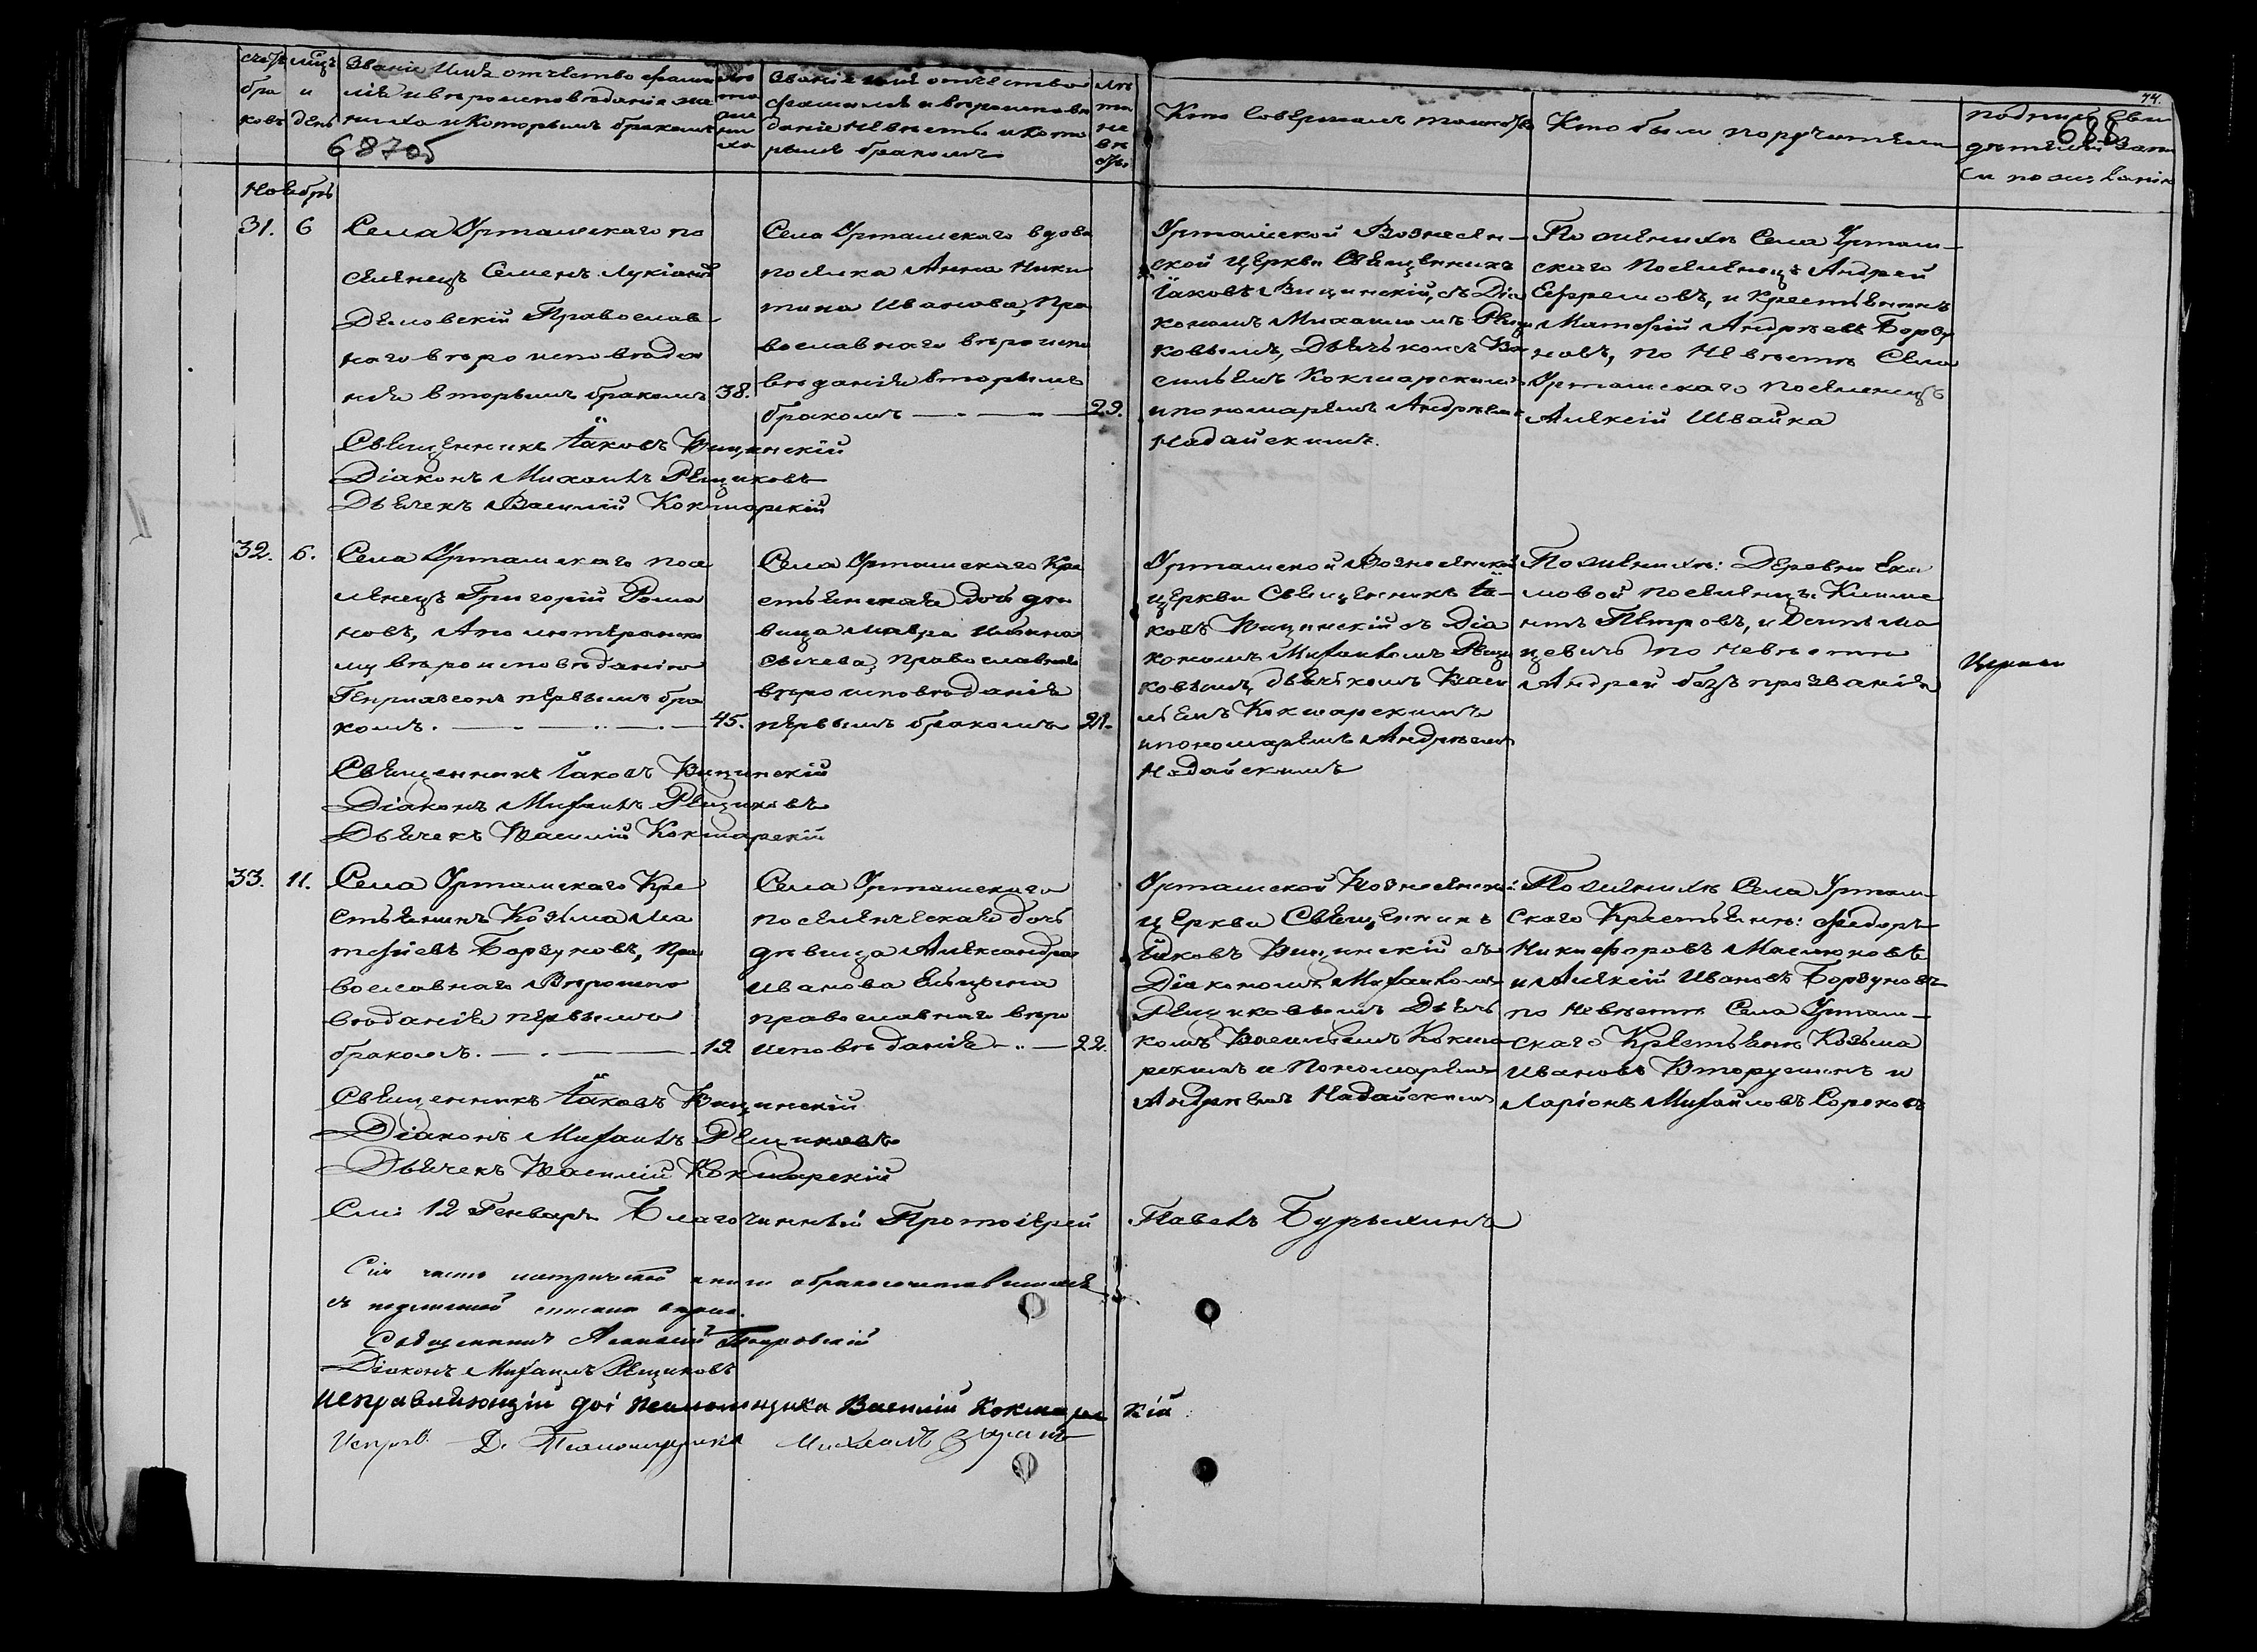 счетъ
бра
ковъ
мсцъ
и
день
Званіе Имя отчество фами
лія и вѣроисповѣданіе же
ниха и Которымъ бракомъ
687об
лѣ
та
же
ни
ха
Званіе имя отчество
фамилія и вѣроисповѣ
даніе невѣсты и кото
рымъ бракомъ
лѣ
та
не
вѣ
сты
Кто Совершалъ таинство
Кто были поручители
44.
подпись Сви
688
дѣтелей Запи
си по желанію
Ноябрь
31.
6
Села Уртамскаго по
селенецъ Семенъ Лукіянъ
Демовскій Православ
наго вѣроисповѣда
нія вторымъ бракомъ
38.
Села Уртамскаго вдова
поселка Анна Ники
тина Иванова, Пра
вославнаго вѣроиспо
вѣданія вторымъ
бракомъ
29.
Уртамской Вознесен-
ской Церкви Священникъ
Іаковъ Вицинскій, съ Діа
кономъ Михаиломъ Рещи
ковымъ, Дьячькомъ Ва
сильемъ Кокшарскимъ
и пономаремъ Андреемъ
Надайскимъ.
По женихѣ Села Уртам-
скаго Поселенецъ Андрей
Ефремовъ, и Крестьянинъ
Матфій Андреевъ Борзу
новъ, по Невѣстѣ Села
Уртамскаго поселенецъ
Алексій Швайка
Священникъ Іаковъ Вицинскій
Діаконъ Михаилъ Рещиковъ
Дьячекъ Василій Кокшарскій
32.
6.
Села Уртамскаго посе
ленецъ Григорій Рома
новъ, А по лютеранско
му вѣроисповѣданію
первымъ бра
комъ.
45.
Села Уртамскаго Кре
стьянская дочь дѣ
вица Мавра
Сычева, православнаго
вѣроисповѣданія
первымъ бракомъ
21.
Уртамской Вознесенской
церкви Священникъ Іа-
ковъ Вицинскій съ Діа
кономъ Михаиломъ Рещи
ковымъ, дьячкомъ Васи
льемъ Кокшарскимъ
и пономаремъ Андреемъ
Надайскимъ
По женихѣ: Деревни Ека
мовой поселенцы: Климе
нтъ Петровъ, и
цевичь по невѣстѣ
Андрей безъ прозванія
Священникъ Іаковъ Вицинскій
Діаконъ Михаилъ Рещиковъ
Дьячекъ Василій Кокшарскій
33.
11.
Села Уртамскаго Кре
стьянинъ Козьма Ма
тфіевъ Борзуновъ, Пра
вославнаго Вѣроиспо
вѣданія первымъ
бракомъ.
19
Села Уртамскаго
поселенческая дочь
дѣвица Александра
Иванова Ельцына
православнаго вѣро
исповѣданія
22.
Уртамской Вознесенской
церкви Священникъ
Іаковъ Вицинскій съ
Діакономъ Михаиломъ
Рещиковымъ Дьяч
комъ Васильемъ Кокша
рскимъ и Пономаремъ
Андреемъ Надайскимъ
По женихѣ Села Уртам-
скаго Крестьяне: Федоръ
Никифоровъ Маслюковъ
и Алексій Ивановъ Борзуновъ
по Невѣстѣ Села Уртам-
скаго Крестьяне Козьма
Ивановъ Вторушинъ и
Ларіонъ Михайловъ Сороковъ
Священникъ Іаковъ Вицинскій
Діаконъ Михаилъ Рещиковъ
Дьячекъ Василій Кокшарскій
12 Генваря Благочинный Протоіерей Павелъ Бурыхинъ
Сія часть метрической книги о бракосочетавшихся
съ подлинной списана вѣрно.
Священникъ Алексій
Діаконъ Михаилъ Рещиковъ
Исправляющій дол Псаломщика Василій Кокшарскій
Испр. Д. Псаломщика Михаилъ